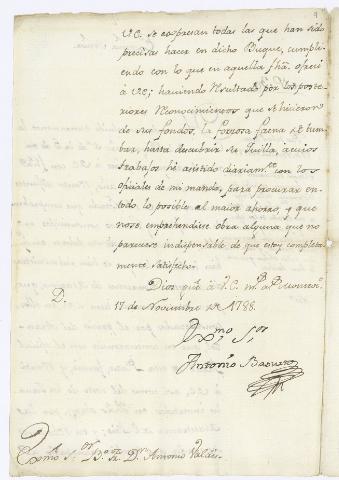 VE. se expresan todas las que han sido
precisas hacer en dicho Buque, cumpli-
endo con lo que en aquella fha. ofreci
a VE; haviendo resultado por los poste-
riores reconocimientos que se hicieron
de sus fondos, la forzosa faena de tum-
bar, hasta descubrir su Quilla, a cuios
trabajos hé asistido diariamte. con los
oficiales de mi mando, para procurar en-
todo lo posible al maior ahorro, y que
no se emprehendiese obra alguna que no
pareciese indispensable de que estoy completa-
mente satisfecho.
Dios gue. à V.E. ms. as.
17 de Noviembre de 1788.
Exmo. Sor.
Antonio
Exmo. Sor. Bo. Fr. Dn. Antonio Valdés.